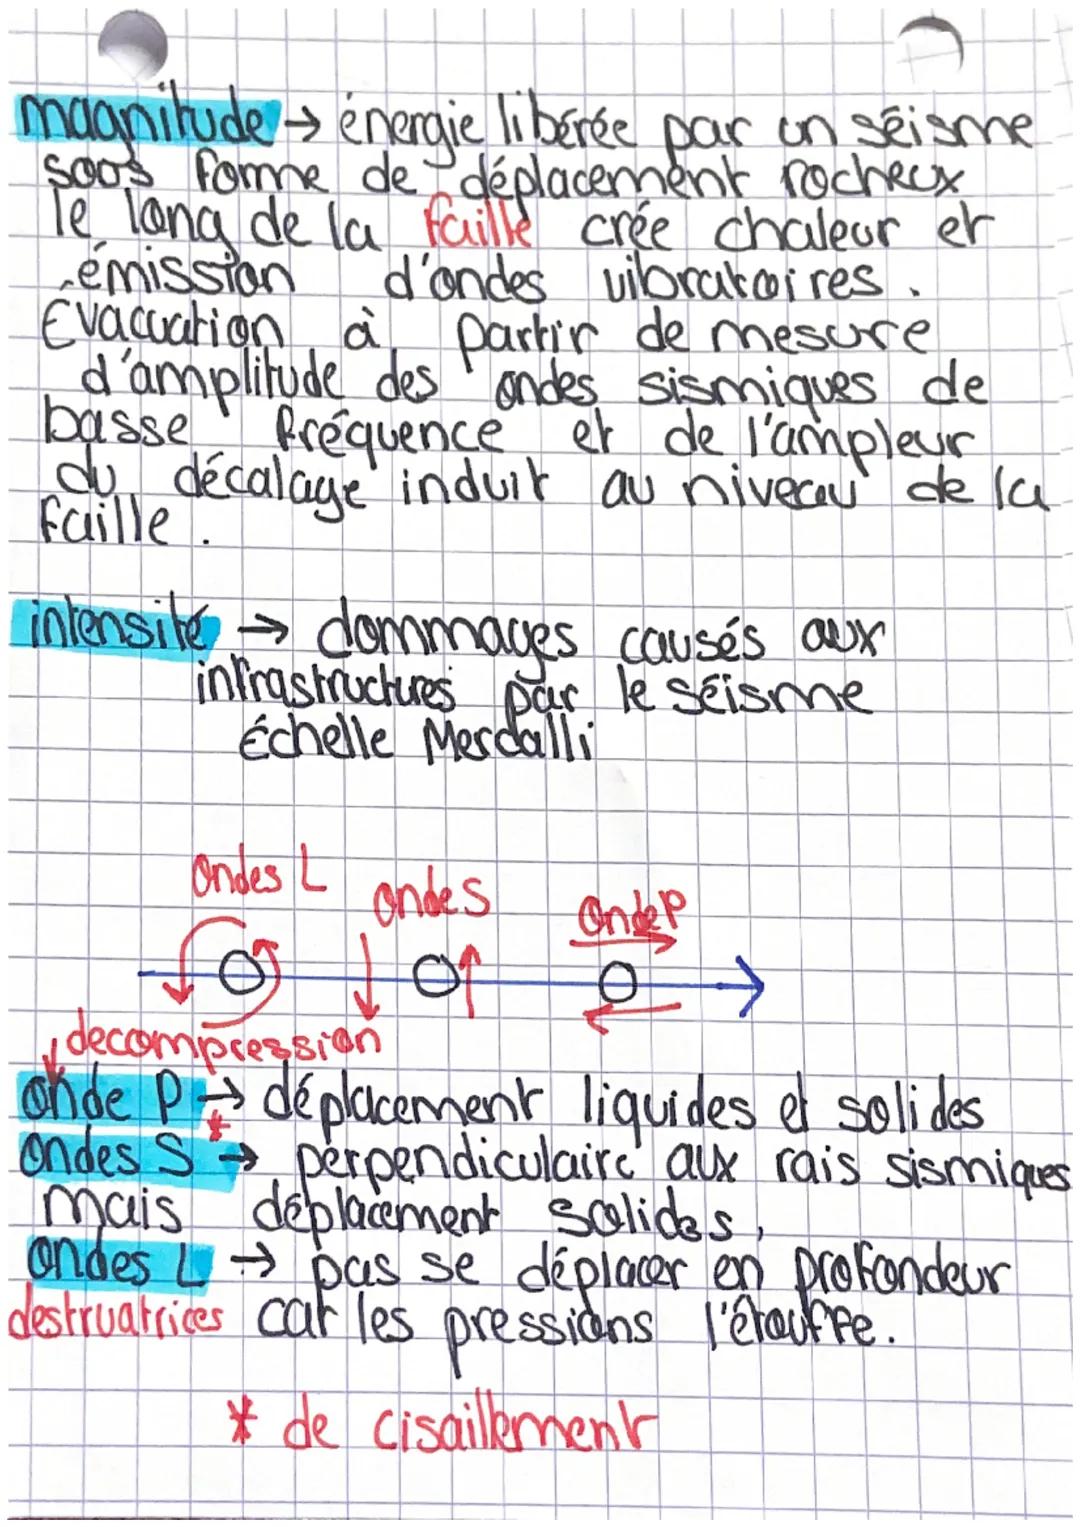 magnitude → énergie libérée par un séisme
sous forme de déplacement rocheux
le long de la faille crée chaleur et
émission d'ondes vibratoires.
Évacuation à partir de mesure
d'amplitude des ondes sismiques de
basse fréquence et de l'ampleur
du décalage induit au niveau de la
faille.
intensité → dommages causés aux
infrastructures par le séisme
Échelle Mercalli
Ondes L
ondes S
Onde P
decompression
onde P → déplacement liquides et solides
ondes S * → perpendiculaire aux rais sismiques
mais déplacement solides,
ondes L → pas se déplacer en profondeur
destruatrices car les pressions l'étouffe.
* de cisaillement